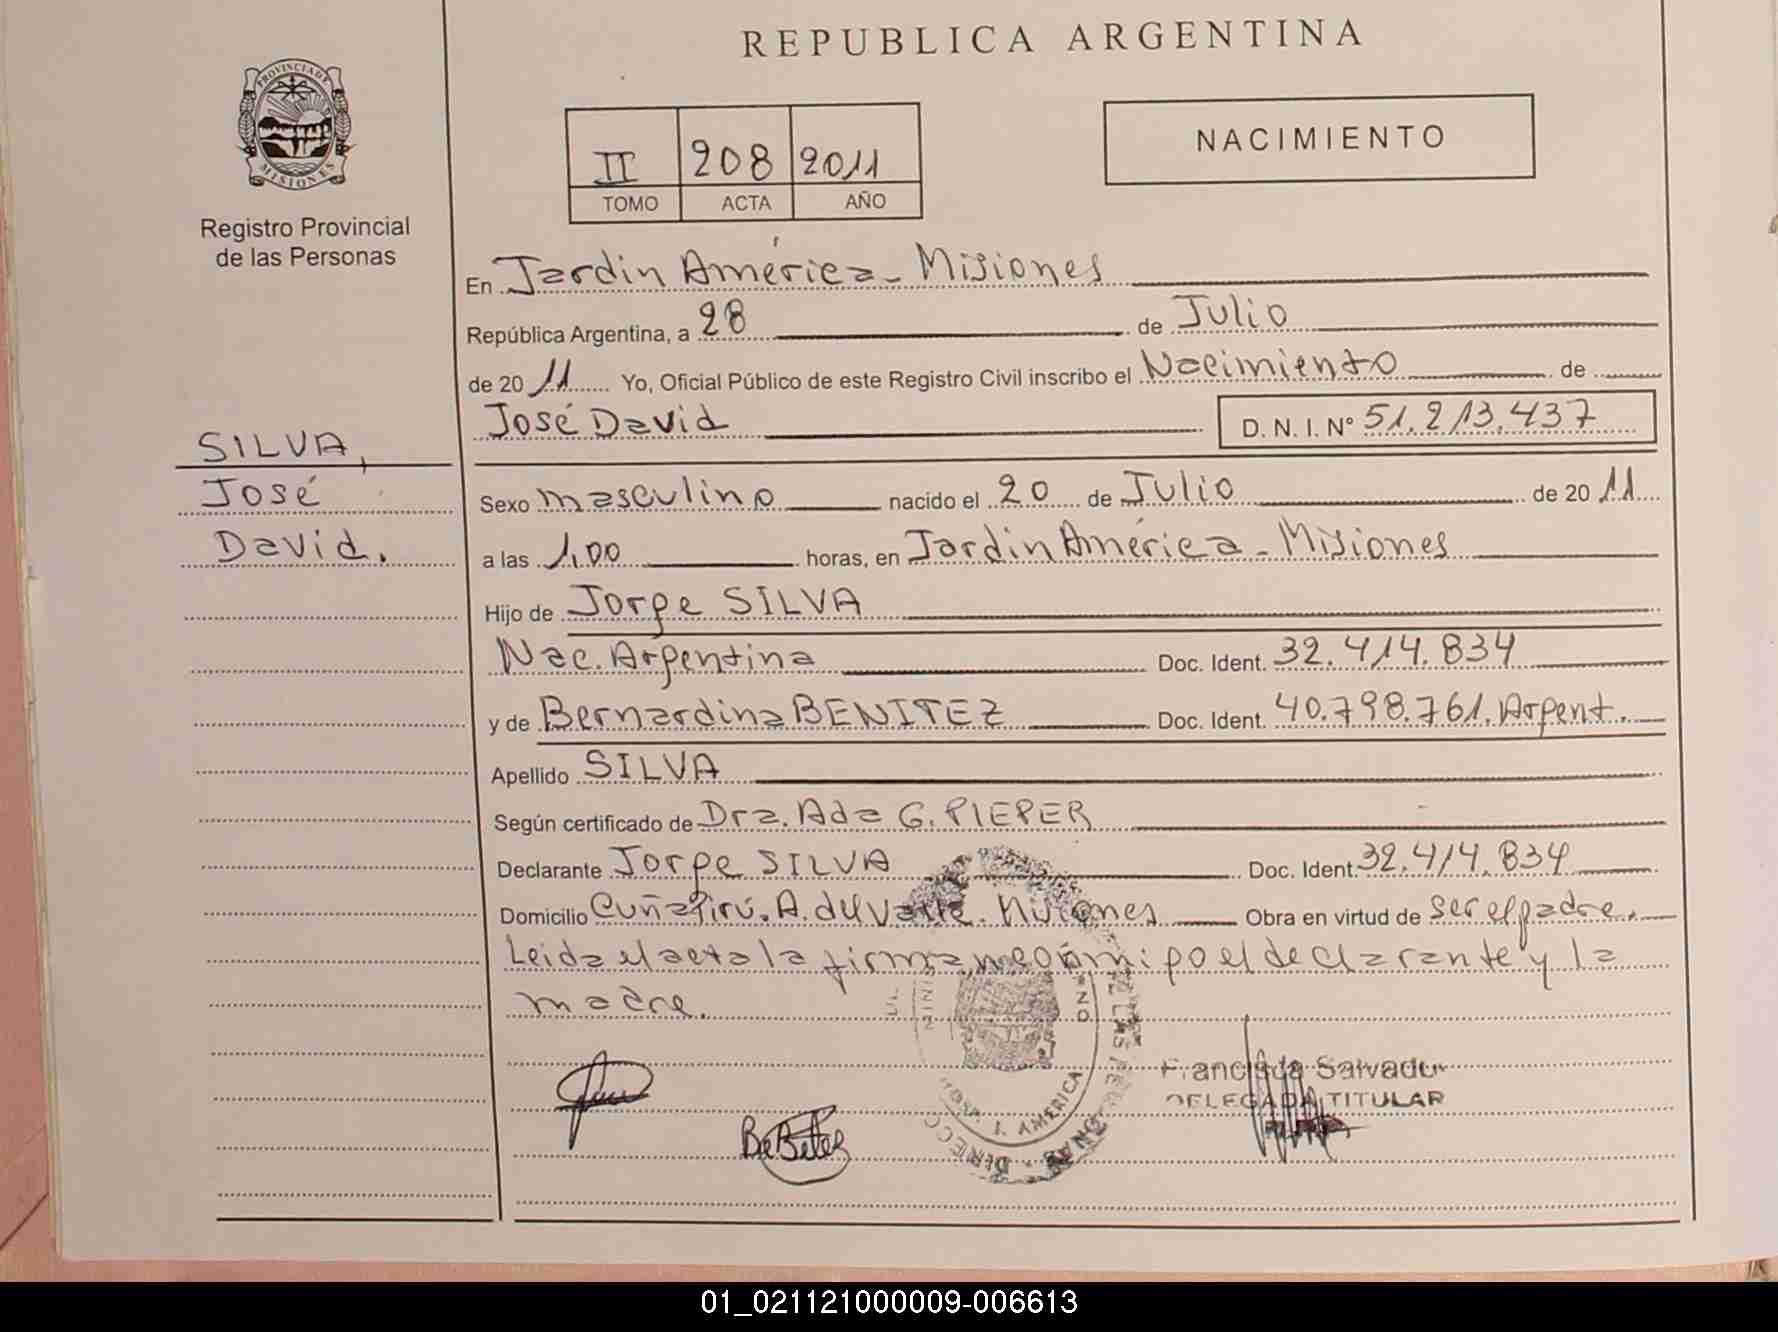 REPUBLICA ARGENTINA
PROVINCIA DE
MISIONES
Registro Provincial
de las Personas
II 208 2011
TOMO ACTA AÑO
NACIMIENTO
En Jardin América - Misiones
República Argentina, a 28 de Julio
de 20 11 Yo, Oficial Público de este Registro Civil inscribo el Nacimiento de
José David D. N. I. Nº 51.213.437
SILVA,
José
David.
Sexo masculino nacido el 20 de Julio de 20 11
a las 1,00 horas, en Jardin América - Misiones
Hijo de Jorge SILVA
Nac. Argentina Doc. Ident. 32.414.834
y de Bernardina BENITEZ Doc. Ident. 40.798.761. Argent.
Apellido SILVA
Según certificado de Dra. Ada G. PIEPER
Declarante Jorge SILVA Doc. Ident. 32.414.834
Domicilio Cuñapirú. A. del Valle. Misiones Obra en virtud de ser el padre.
Leida el acta la firma conmigo el declarante y la
madre.
Francisca Salvador
DELEGADA TITULAR
BeBitez
J. AMERICA
01_021121000009-006613